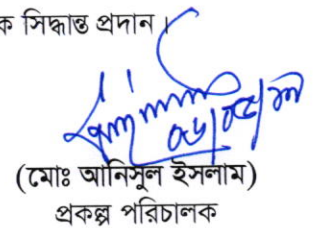 ক সিদ্ধান্ত প্রদান।
(মোঃ আনিসুল ইসলাম)
প্রকল্প পরিচালক